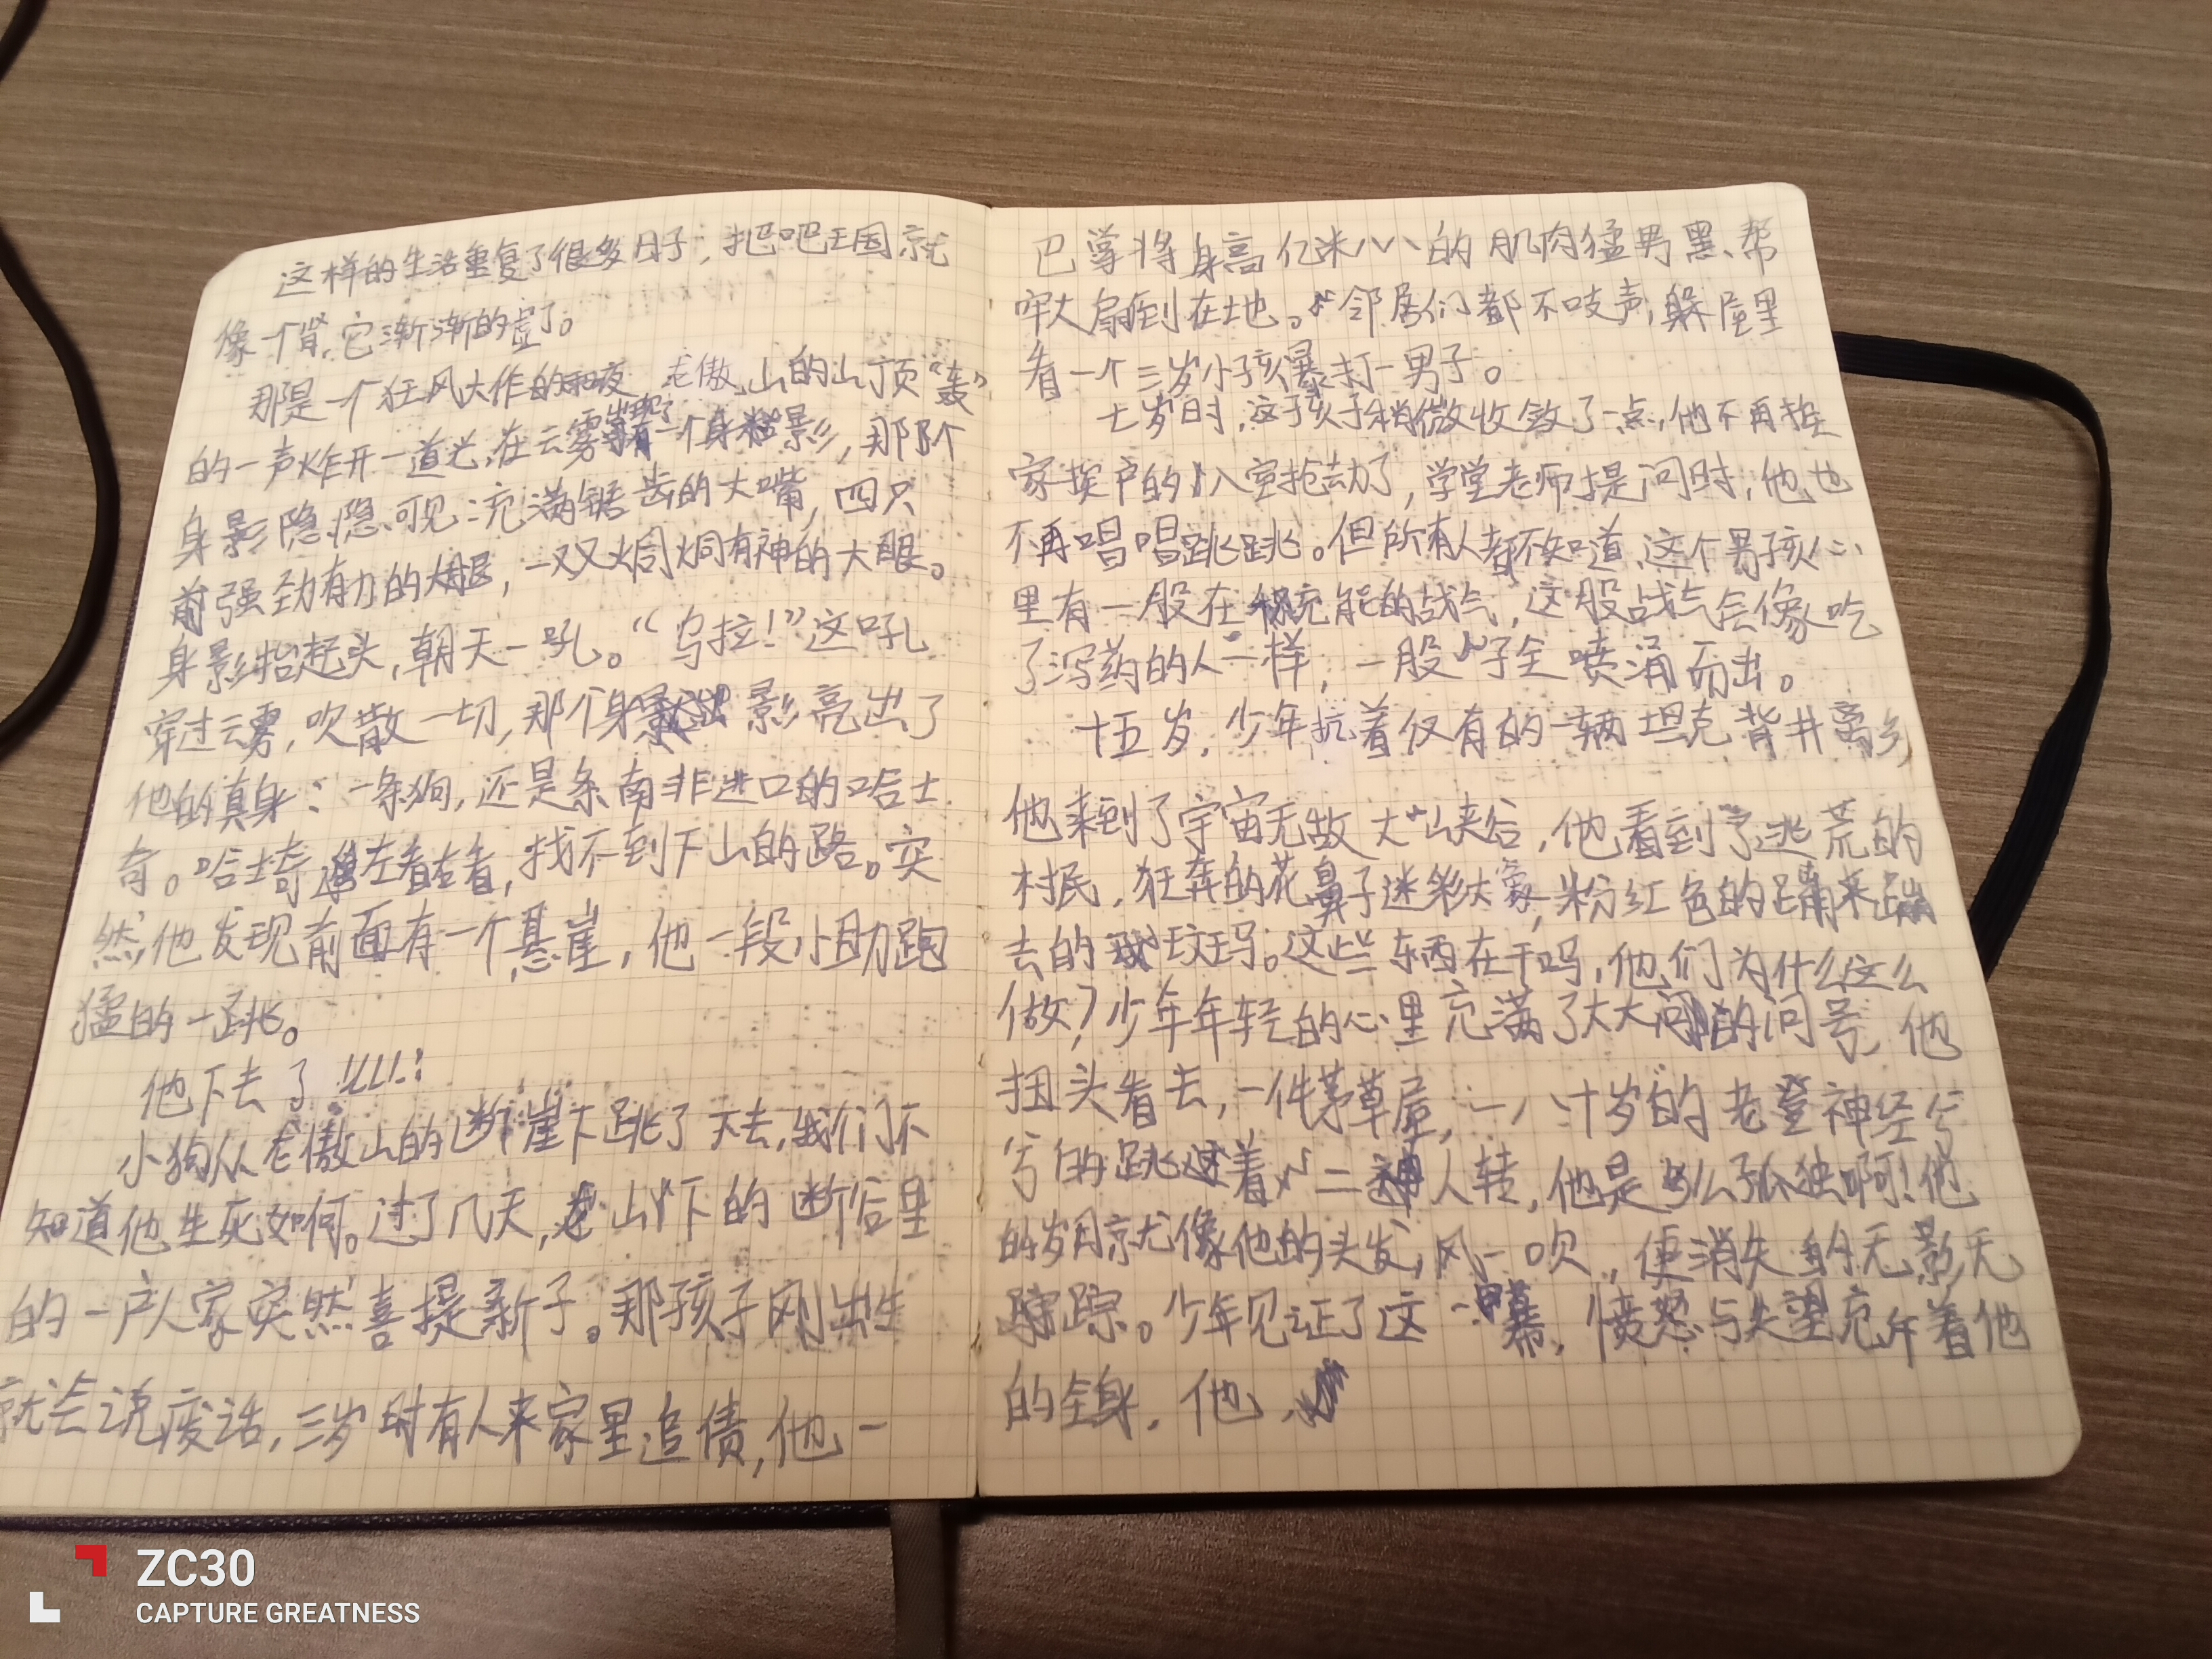 这样的生活重复了很多日子，把吧王国就
像一个肾，它渐渐的虚了。
那是一个狂风大作的雨夜，老傲山的山顶“轰”
的一声炸开一道光，在云雾出现了一个身影，那个
身影隐隐可见：充满锯齿的大嘴，四只
前强劲有力的大腿，一双火炯火炯有神的大眼。
身影抬起头，朝天一吼。“乌拉！”这吼
穿过云雾，吹散一切，那个身影亮出了
他的真身：一条狗，还是条南非进口的哈士
奇。哈士奇左看右看，找不到下山的路。突
然，他发现前面有一个悬崖，他一段小助跑
猛的一跳。
他下去了！
小狗从老傲山的断崖下跳了下去，我们不
知道他生死如何。过了几天，山下的断谷里
的一户人家突然喜提新子。那孩子刚出生
就会说废话，三岁时有人来家里追债，他一
巴掌将身高亿米的肌肉猛男黑帮
牢大扇到在地。邻居们都不吱声，躲屋里
看一个三岁小孩暴打一男子。
七岁时，这孩子稍微收敛了一点，他不再挨
家挨户的入室抢劫了，学堂老师提问时，他也
不再唱唱跳跳。但所有人都不知道，这个男孩心
里有一股在充能的战气，这股战气会像吃
了泻药的人一样，一股子全喷涌而出。
十五岁，少年扛着仅有的一辆坦克背井离乡，
他来到了宇宙无敌大山夹谷，他看到了逃荒的
村民，狂奔的花鼻子迷彩大象，粉红色的蹦来蹦
去的斑马。这些东西在干吗，他们为什么这么
做？少年年轻的心里充满了大大的问号，他
扭头看去，一件茅草屋，一八十岁的老登神经兮
兮的跳着二人转，他是多么孤独啊！他
的岁月就像他的头发，风一吹，便消失的无影无
踪。少年见证了这一幕，愤怒与失望充斥着他
的全身，他，
ZC30
CAPTURE GREATNESS